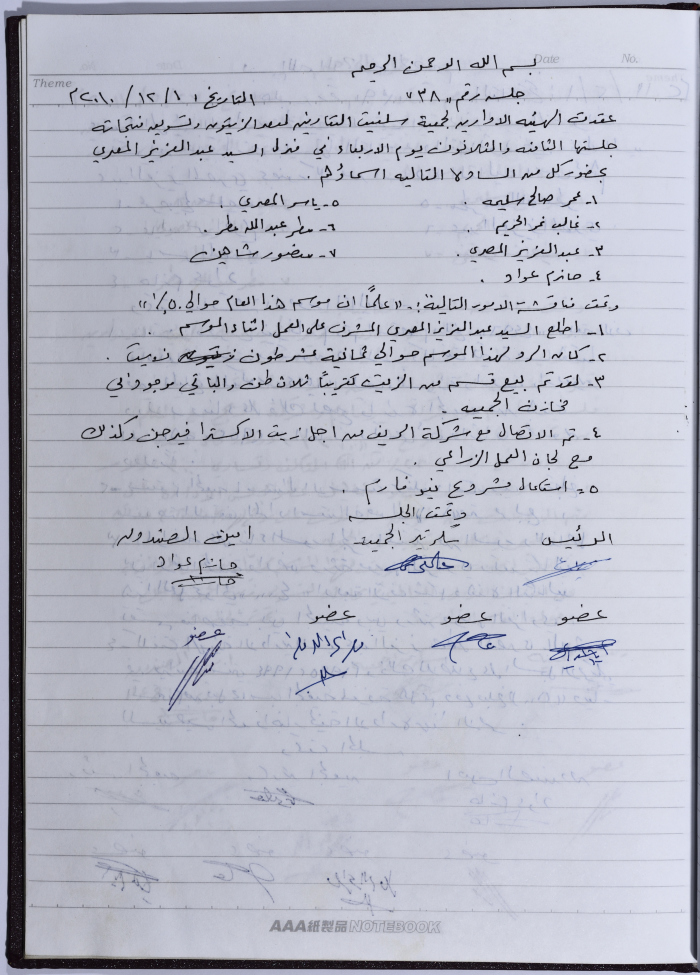 No.
Date
Theme
بسم الله الرحمن الرحيم
جلسه رقم "٣٨" التاريخ: ١/١٢/٢٠١٠م
عقدت الهيئه الادارية لجمعية سلفيت التعاونية لعصر الزيتون وتسويق منتجاته
جلستها الثامنه والثلاثون يوم الاربعاء في منزل السيد عبد العزيز المصري
بحضور كل من السادة التاليه اسماؤهم.
١- عمر صالح سليمه . ٥- ياسر المصري .
٢- غالب نمر . ٦- مطر عبد الله مطر .
٣- عبد العزيز المصري . ٧- منصور شاهين
٤- حازم عواد .
وتمت مناقشة الامور التالية :- "علماً ان موسم هذا العام حوالي ٥٠٪"
١- اطلع السيد عبد العزيز المصري المشرف على العمل اثناء الموسم .
٢- كان الرد لهذا الموسم حوالي ثمانية عشر طون زيت .
٣- لقد تم بيع قسم من الزيت تقريباً ثلاث طن والباقي موجود في
مخازن الجمعيه .
٤- تم الاتصال مع شركة الريف من اجل زيت الاكسترا فيرجن وكذلك
مع لجان العمل الزراعي .
٥- استكمال مشروع نيو فارم .
وتمت الجلسه
الرئيس سكرتير الجمعيه امين الصندوق
حازم عواد
عضو عضو عضو عضو
AAA紙製品 NOTEBOOK